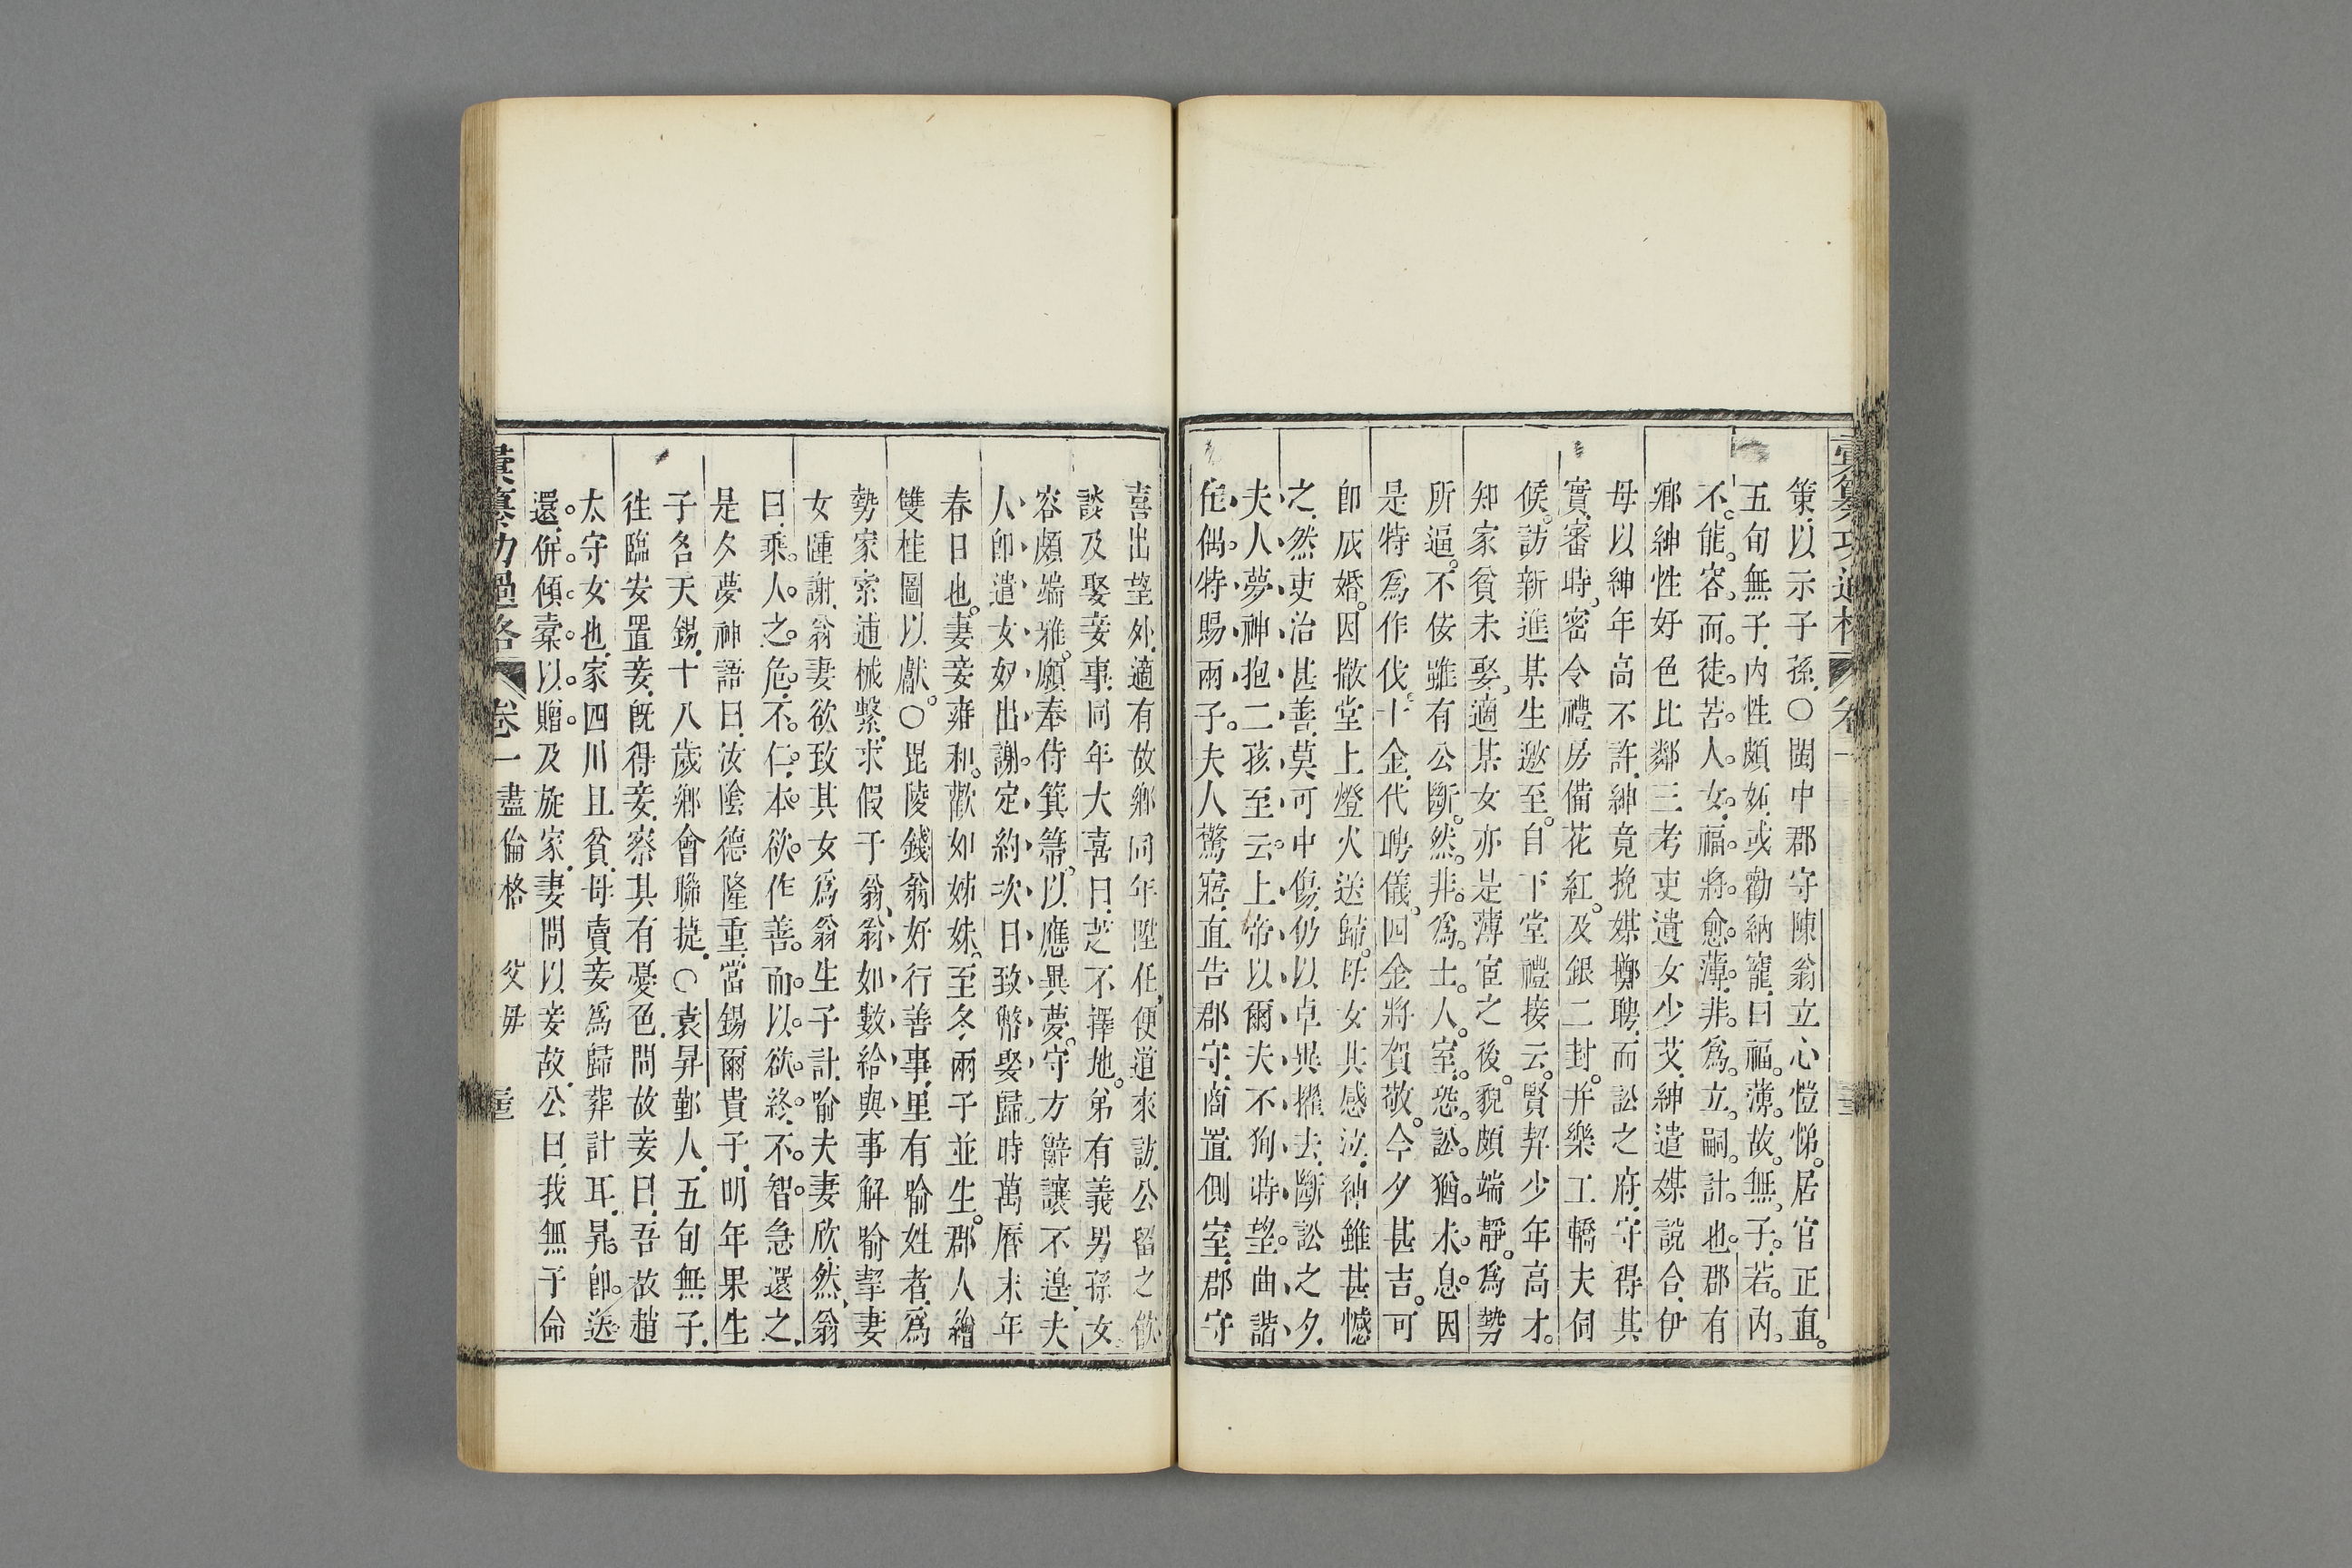 彙纂功過格 卷一
策以示子孫○閩中郡守陳翁立心愷悌居官正直
五旬無子內性頗妬或勸納寵曰福薄故無子若內
不能容而徒苦人女福將愈薄非爲立嗣計也郡有
鄉紳性好色比鄰三考吏遺女少艾紳遣媒說合伊
母以紳年高不許紳竟挽媒擲聘而訟之府守得其
實審時密令禮房備花紅及銀二封并樂工轎夫伺
候訪新進某生邀至自下堂禮接云賢契少年高才
知家貧未娶適某女亦是薄宦之後貌頗端靜爲勢
所逼不佞雖有公斷然非爲士人室恐訟猶未息因
是特爲作伐十金代聘儀四金將賀敬今夕甚吉可
卽成婚因撤堂上燈火送歸母女其感泣紳雖甚憾
之然吏治甚善莫可中傷仍以卓異擢去斷訟之夕
夫人夢神抱二孩至云上帝以爾夫不狥時望曲諧
佳偶特賜兩子夫人驚寤直告郡守商置側室郡守
喜出望外適有故鄉同年陞任便道來訪公留之飲
談及娶妾事同年大喜曰芝不擇地弟有義男孫女
容頗端雅願奉侍箕箒以應異夢守方辭讓不遑夫
人卽遣女奴出謝定約次日致幣娶歸時萬曆末年
春日也妻妾雍和歡如姊妹至冬兩子並生郡人繪
雙桂圖以獻○毘陵錢翁好行善事里有喻姓者爲
勢家索逋械繫求假于翁翁如數給與事解喻挈妻
女踵謝翁妻欲致其女爲翁生子計喻夫妻欣然翁
曰乘人之危不仁本欲作善而以欲終不智急還之
是夕夢神語曰汝陰德隆重當錫爾貴子明年果生
子名天錫十八歲鄉會聯捷○袁昇鄞人五旬無子
往臨安置妾旣得妾察其有憂色問故妾曰吾故趙
太守女也家四川且貧母賣妾爲歸葬計耳昇卽送
還倂傾橐以贈及旋家妻問以妾故公曰我無子命
彙纂功過格 卷一 盡倫格 父母